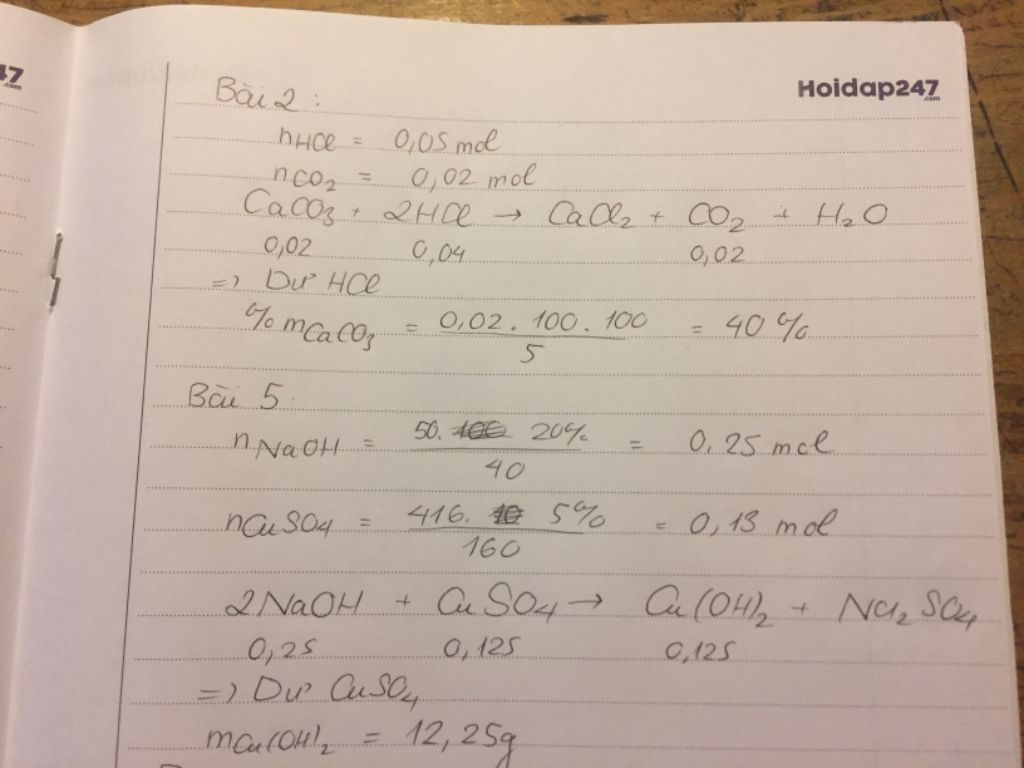 47
.com
Hoidap247
.com
Bài 2 :
nHCl = 0,05 mol
nCO2 = 0,02 mol
CaCO3 + 2HCl → CaCl2 + CO2 + H2O
0,02 0,04 0,02
=> Dư HCl
% mCaCO3 = 0,02 . 100 . 100 / 5 = 40 %
Bài 5 :
nNaOH = 50. 20% / 40 = 0,25 mol
nCuSO4 = 416. 5% / 160 = 0,13 mol
2NaOH + CuSO4 → Cu(OH)2 + Na2SO4
0,25 0,125 0,125
=> Dư CuSO4
mCu(OH)2 = 12,25g